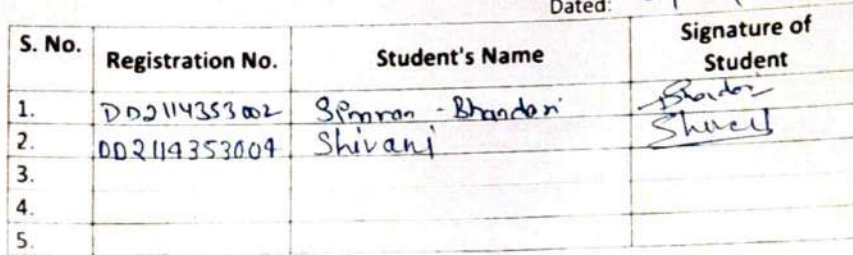 Dated:
S. No. Registration No. Student's Name Signature of Student
1. DD2114353002 Simran - Bhandari Bhandari
2. DD2114353009 Shivani
3.
4.
5.